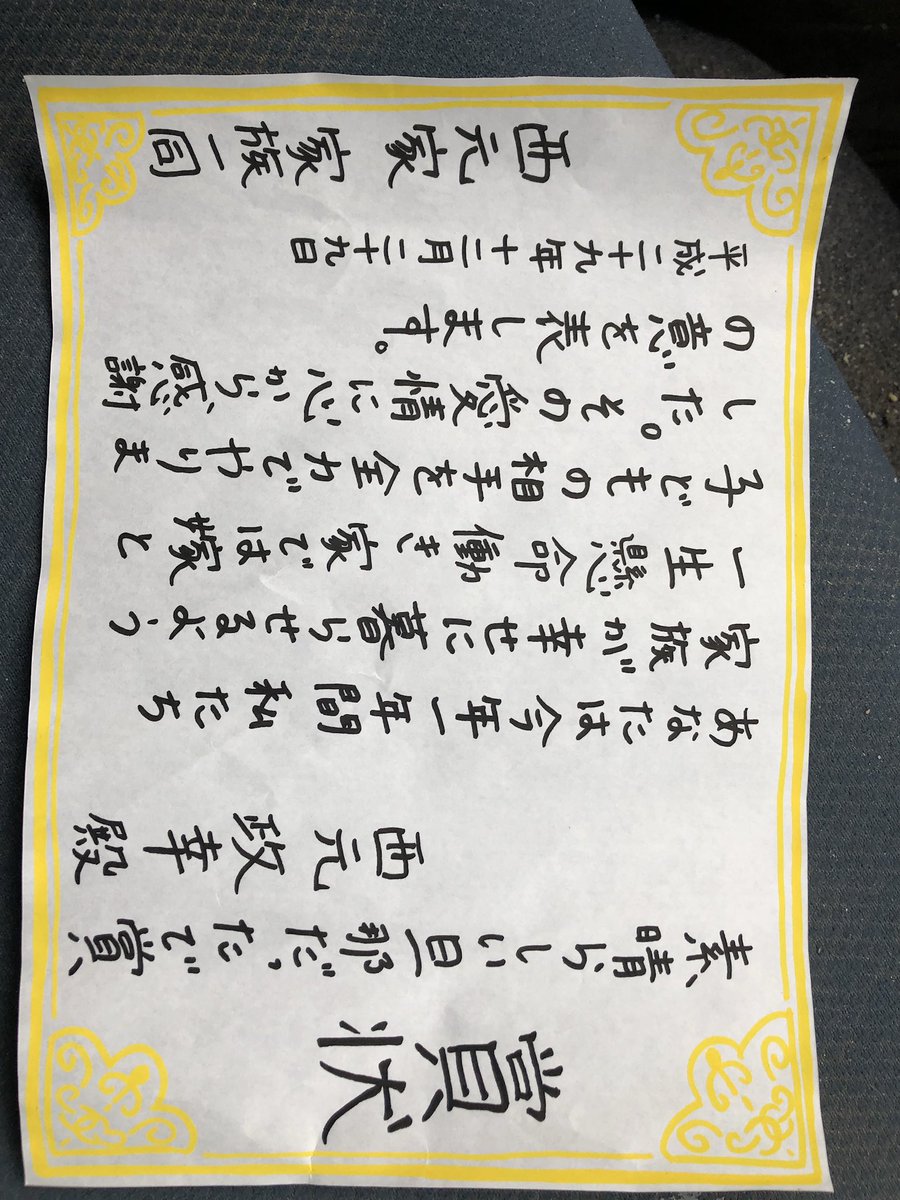 賞状
素晴らしい旦那だったで賞
西元政幸殿
あなたは今年一年間私たち
家族が幸せに暮らせるよう
一生懸命働き家では嫁と
子どもの相手を全力でやりま
した。その愛情に心から、感謝
の意を表します。
平成二十九年十二月二十九日
西元家家族一同